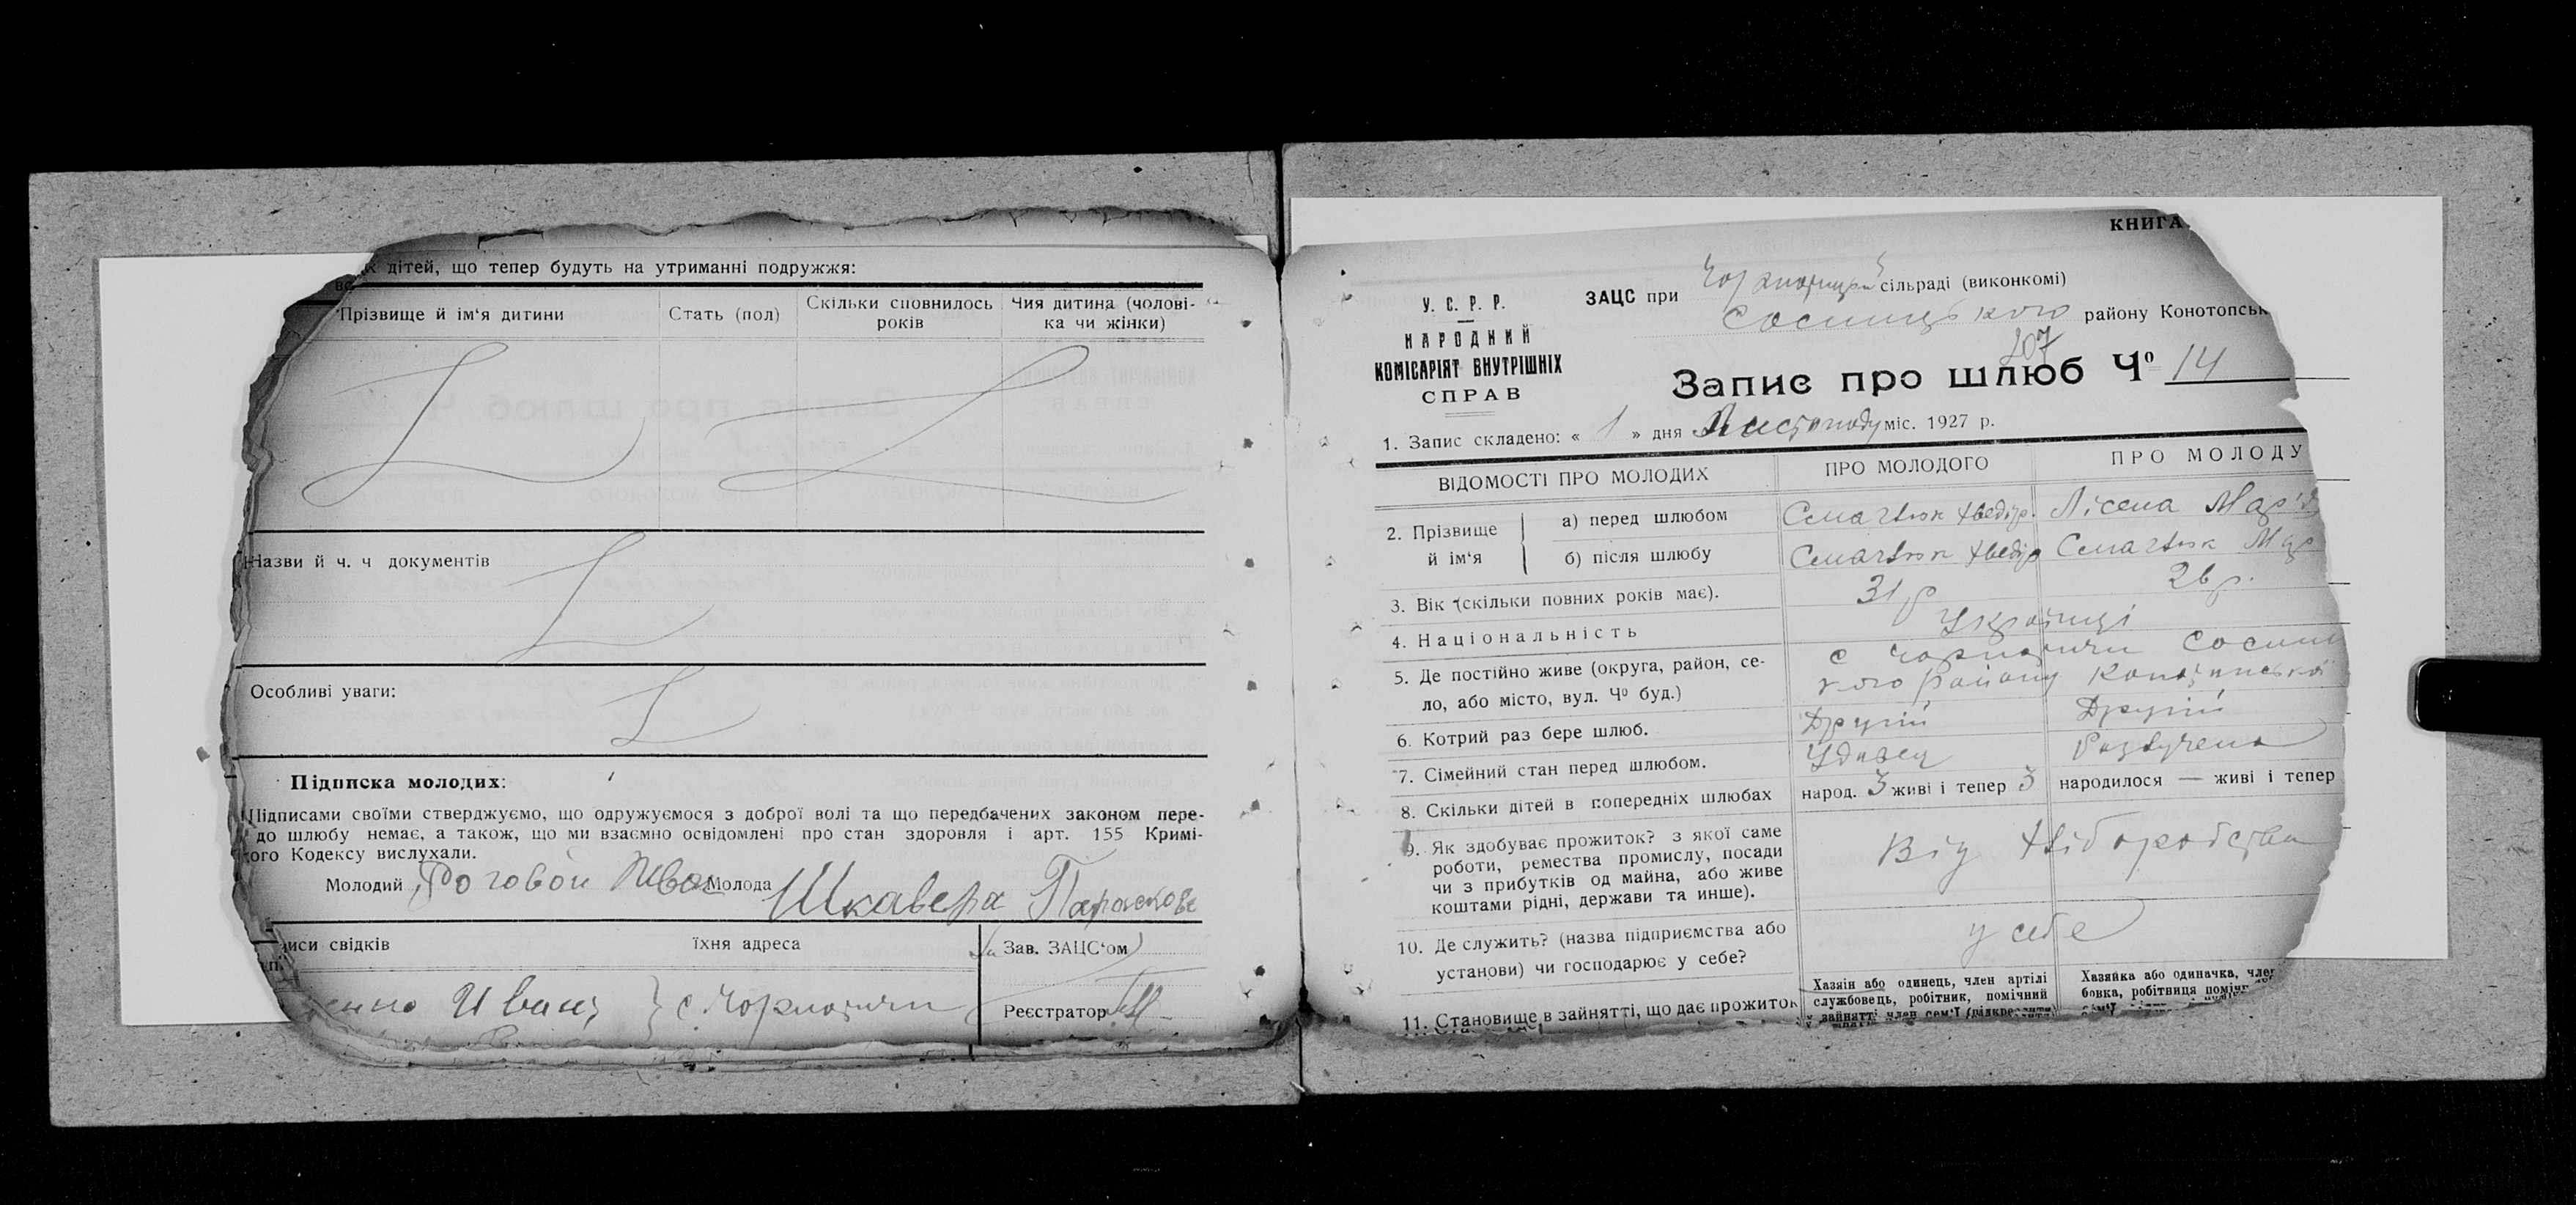 дітей, що тепер будуть на утриманні подружжя:
Прізвище й ім'я дитини
Стать (пол)
Скільки сповнилось років
Чия дитина (чолові-
ка чи жінки)
Назви й ч. ч документів
Особливі уваги:
Підписка молодих:
Підписами своїми стверджуємо, що одружуємося з доброї волі та що передбачених законом пере-
до шлюбу немає, а також, що ми взаємно освідомлені про стан здоровля і арт. 155 Кримі-
ого Кодексу вислухали.
Молодий Роговой Иван Молода Шкавера Параскове
иси свідків
їхня адреса
Зав. ЗАЦС'ом
Иванъ } с Чорнотичи
Реєстратор
КНИГА
У. С. Р. Р.
НАРОДНИЙ
КОМІСАРІЯТ ВНУТРІШНІХ
СПРАВ
ЗАЦС при сільраді (виконкомі)
Сосницького району Конотопськ
207
Запис про шлюб Ч⁰ 14
1. Запис складено: « 1 » дня Листопаду міс. 1927 р.
ВІДОМОСТІ ПРО МОЛОДИХ
ПРО МОЛОДОГО
ПРО МОЛОДУ
2. Прізвище й ім'я
а) перед шлюбом
Хведір
Лісена Мар'я
б) після шлюбу
Хведір
Мар
3. Вік (скільки повних років має).
31 р
26 р.
4. Національність
Українці
5. Де постійно живе (округа, район, се-
ло, або місто, вул. Ч⁰ буд.)
с Чорнотичи Сосниц
кого району Конотопської
6. Котрий раз бере шлюб.
Другий
Другий
7. Сімейний стан перед шлюбом.
Удовец
Розвучена
8. Скільки дітей в попередніх шлюбах
народ. 3 живі і тепер 3
народилося — живі і тепер
9. Як здобуває прожиток? з якої саме
роботи, ремества промислу, посади
чи з прибутків од майна, або живе
коштами рідні, держави та инше).
Від хліборобства
10. Де служить? (назва підприємства або
установи) чи господарює у себе?
у себе
11. Становище в зайнятті, що дає прожиток
Хазяїн або одинець, член артілі
службовець, робітник, помічний
у зайнятті член сем'ї (підкреслити)
Хазяйка або одиначка, член
бовка, робітниця поміч